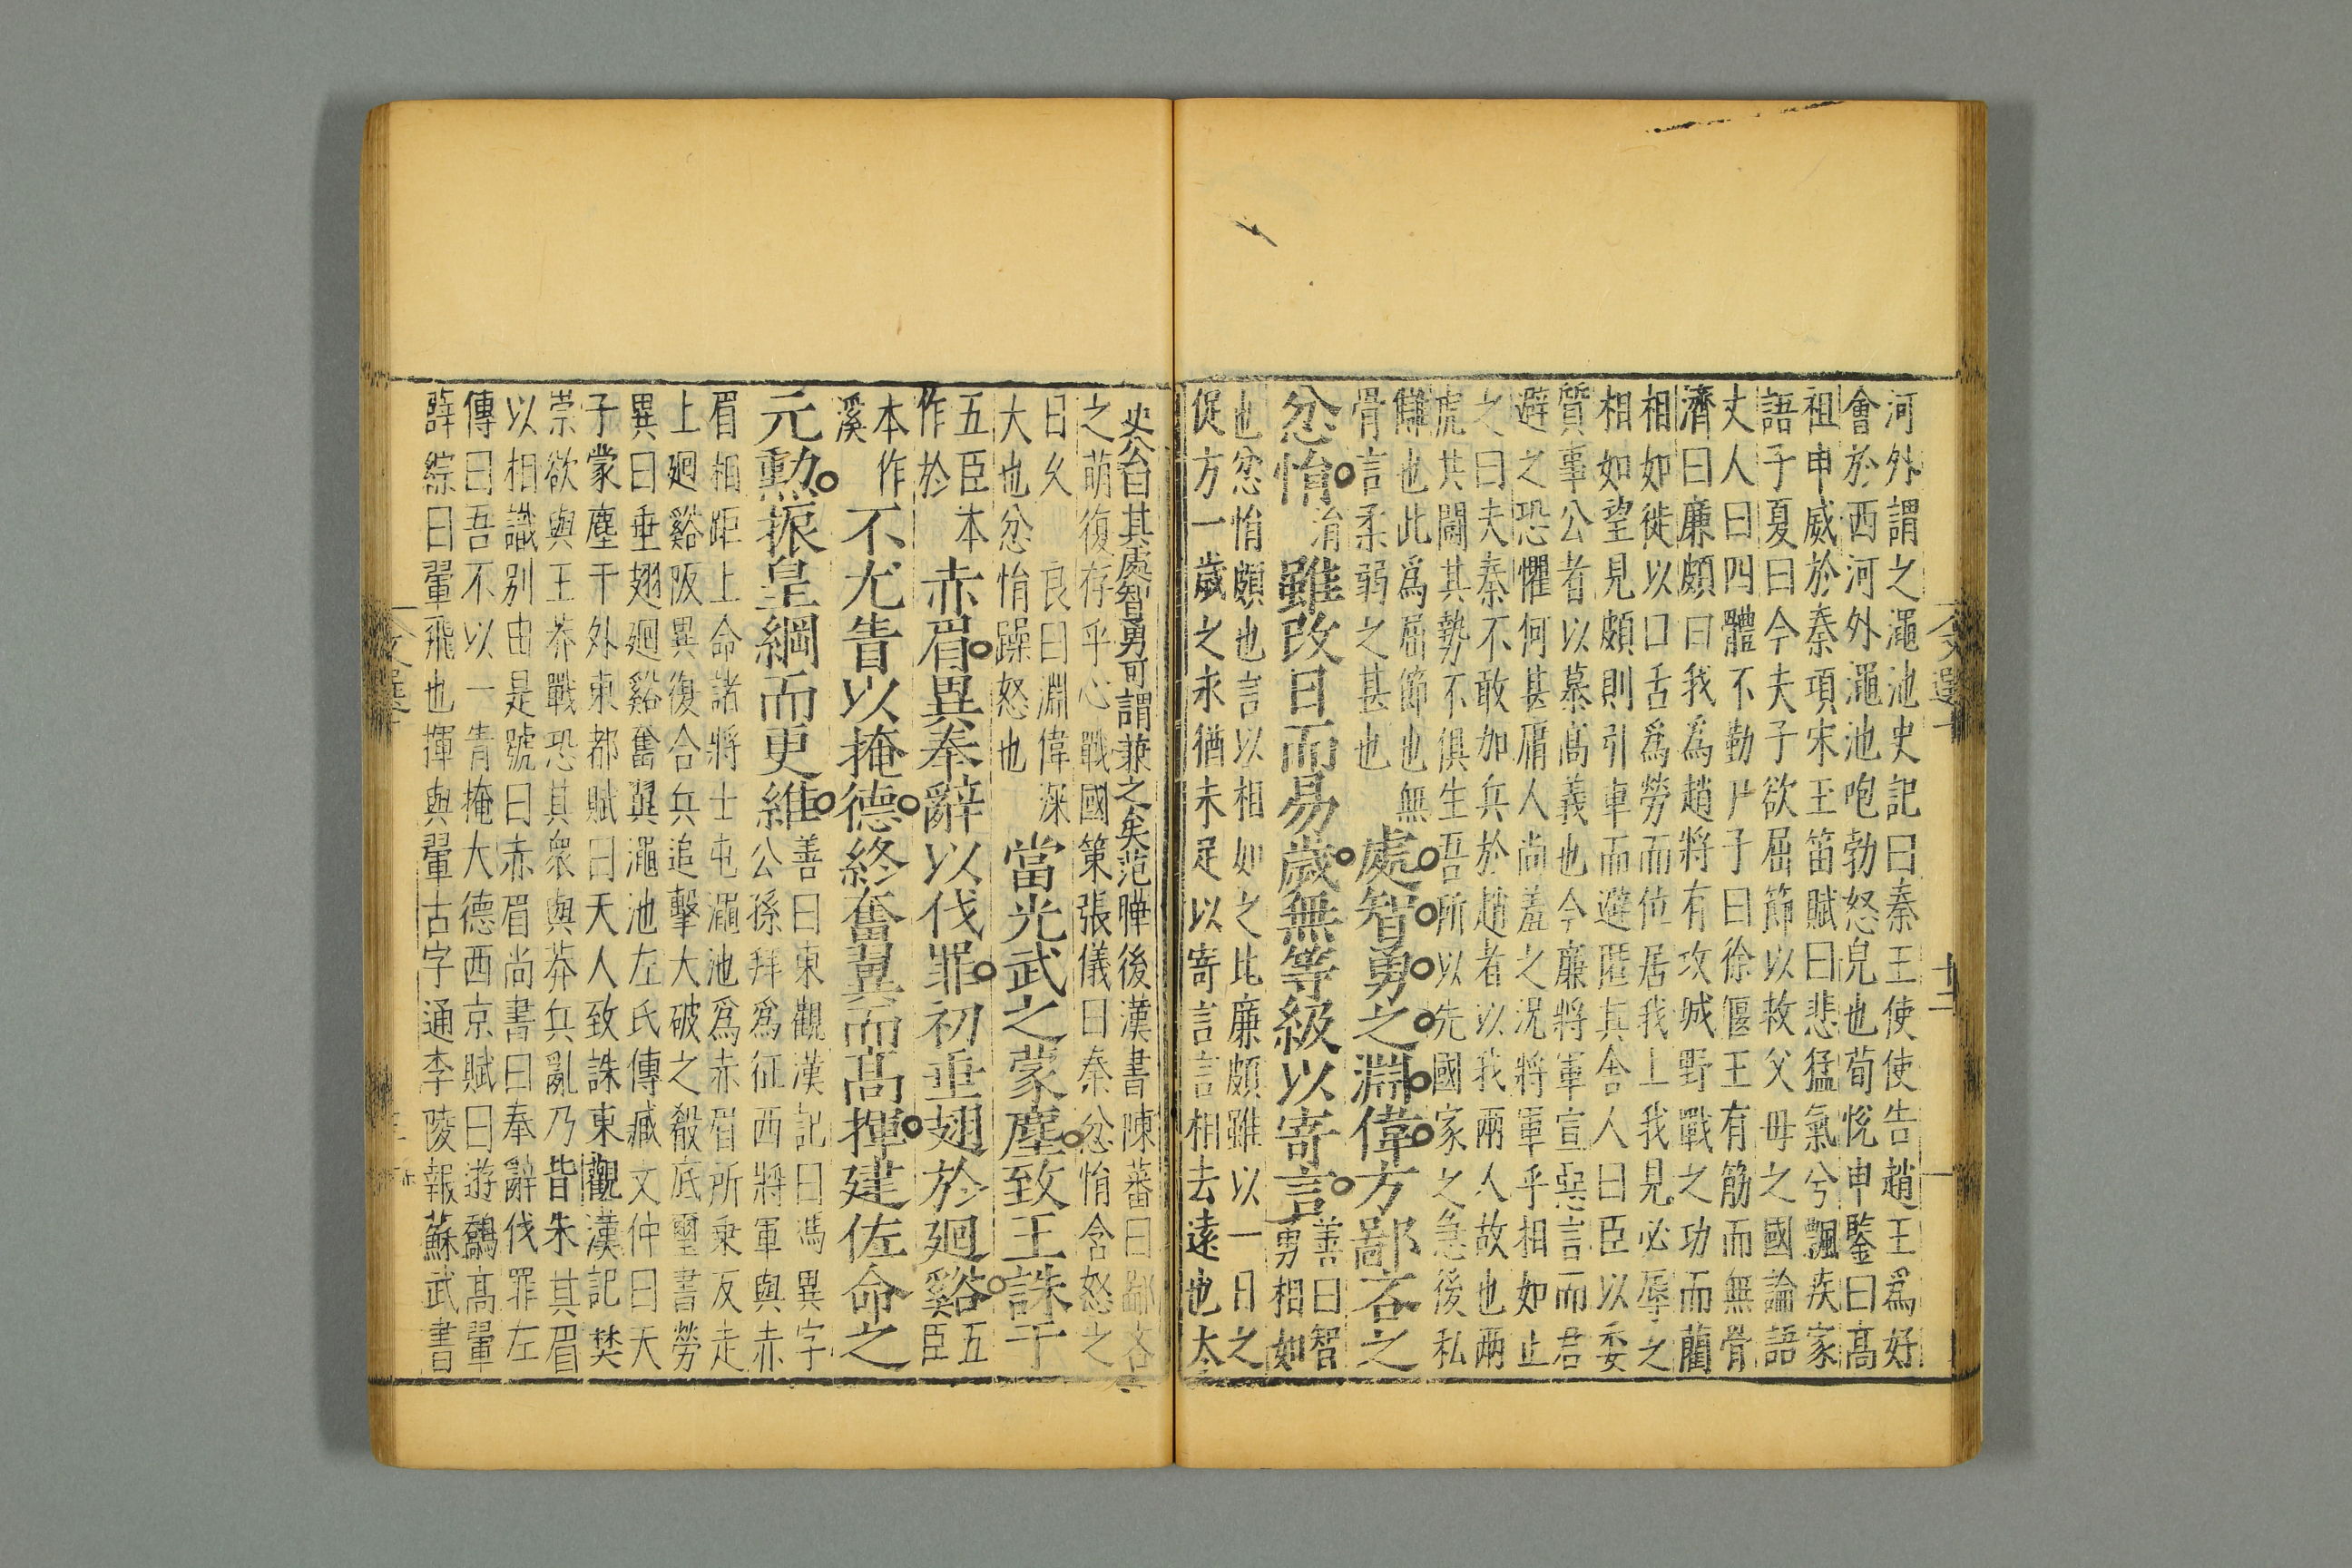 河外謂之澠池史記曰秦王使使告趙王爲好
會於西河外澠池咆勃怒皃也荀悅申鑒曰高
祖申威於秦項宋玉笛賦曰悲猛氣兮飄疾家
語子夏曰今夫子欲屈節以救父母之國論語
丈人曰四體不勤尸子曰徐偃王有筋而無骨
濟曰廉頗曰我爲趙將有攻城野戰之功而藺
相如徒以口舌爲勞而位居我上我見必辱之
相如望見頗則引車而避匿其舍人曰臣以委
質事公者以慕高義也今廉將軍宣惡言而君
避之恐懼何甚庸人尚羞之况將軍乎相如止
之曰夫秦不敢加兵於趙者以我兩人故也兩
虎共鬭其勢不俱生吾所以先國家之急後私
讎也此爲屈節也無
骨言柔弱之甚也
處智勇之淵偉方鄙吝之
忿悁
雖改日而易歲無等級以寄言
善曰智
勇相如
也忿悁頗也言以相如之比廉頗雖以一日之
促方一歲之永猶未足以寄言言相去遠也太
史公曰其處智勇可謂兼之矣范曄後漢書陳蕃曰鄙吝
之萌復存乎心戰國策張儀曰秦忿悁含怒之
日久 良曰淵偉深
大也忿悁躁怒也
當光武之蒙塵致王誅于
五臣本
作於
赤眉異奉辭以伐罪初垂翅於廻谿
五
臣
本作
溪
不尤眚以掩德終奮翼而高揮建佐命之
元勲振皇綱而更維
善曰東觀漢記曰馮異字
公孫拜爲征西將軍與赤
眉相距上命諸將士屯澠池爲赤眉所乗反走
上廻谿阪異復合兵追擊大破之殽底璽書勞
異曰垂翅廻谿奮翼澠池左氏傳臧文仲曰天
子蒙塵于外東都賦曰天人致誅東觀漢記樊
崇欲與王莽戰恐其衆與莽兵亂乃皆朱其眉
以相識別由是號曰赤眉尚書曰奉辭伐罪左
傳曰吾不以一眚掩大德西京賦曰游鷮高翬
薛綜曰翬飛也揮與翬古字通李陵報蘇武書
文選十
十二